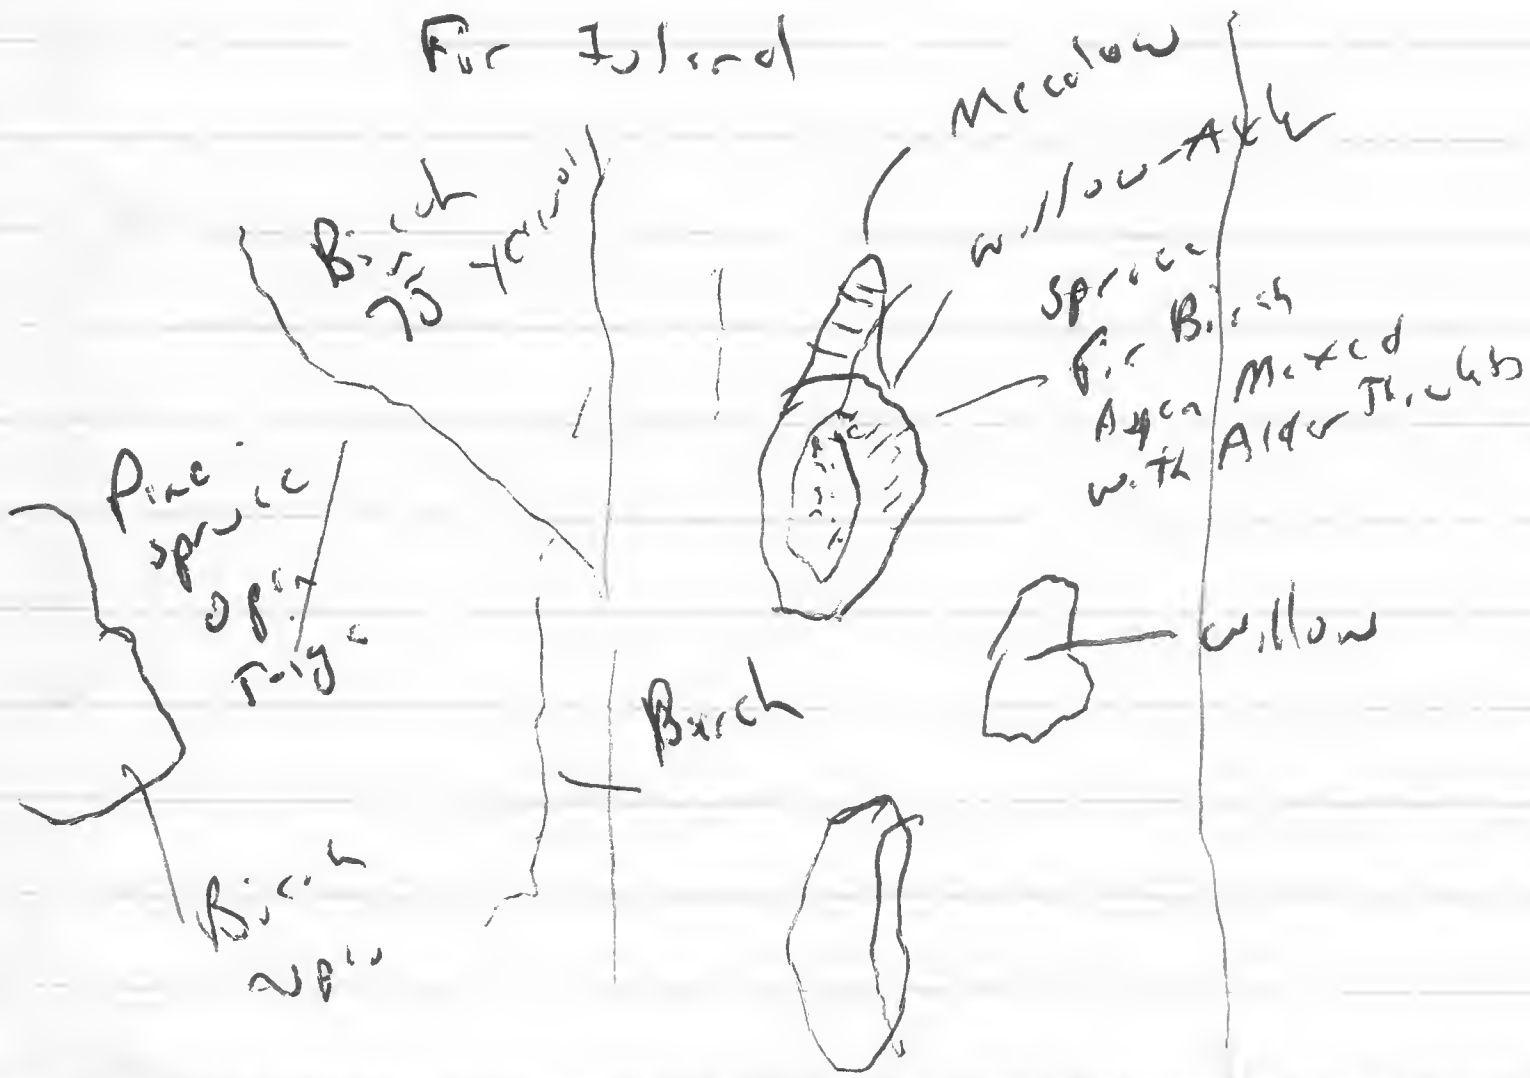 Fir Island
Meadow
Willow-
Birch
75 years
Spruce
Fir Birch
Aspen Mixed
with Alder Thickets
Pine
Spruce
Open
Taiga
Willow
Birch
Birch